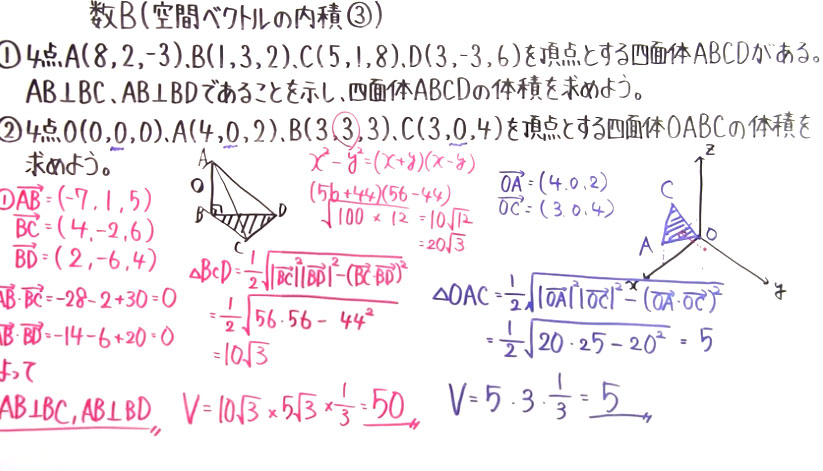 数B(空間ベクトルの内積③)
①4点A(8,2,-3).B(1,3,2).C(5,1,8).D(3,-3,6)を頂点とする四面体ABCDがある。
AB⊥BC、AB⊥BDであることを示し、四面体ABCDの体積を求めよう。
②4点O(0,0,0).A(4,0,2).B(3.3,3).C(3,0,4)を頂点とする四面体OABCの体積を
求めよう。
①AB=(-7,1,5)
BC=(4,-2,6)
BD=(2,-6,4)
AB·BC=-28-2+30=0
AB·BD=-14-6+20=0
よって
AB⊥BC,AB⊥BD
A
O
B
C
D
x²-y²=(x+y)(x-y)
(56+44)(56-44)
√100×12=10√12
=20√3
△BCD=1/2√|BC|²|BD|²-(BC·BD)²
=1/2√56·56-44²
=10√3
V=10√3×5√3×1/3=50
OA=(4.0.2)
OC=(3.0.4)
z
C
A
O
x
y
△OAC=1/2√|OA|²|OC|²-(OA·OC)²
=1/2√20·25-20²=5
V=5·3·1/3=5